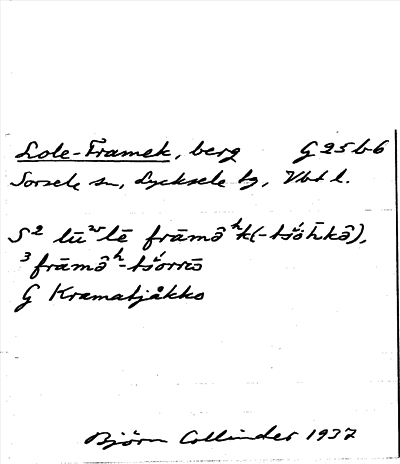 Lole-Framek, berg G 25 b 6
Sorsele sn, Lycksele lg, Vbt l.
S² lūʷlē frāmāʰk(-tśåh̄kā̂),
³frāmāʰ-tśorrō
G Kramatjåkko
Björn Collinder 1937